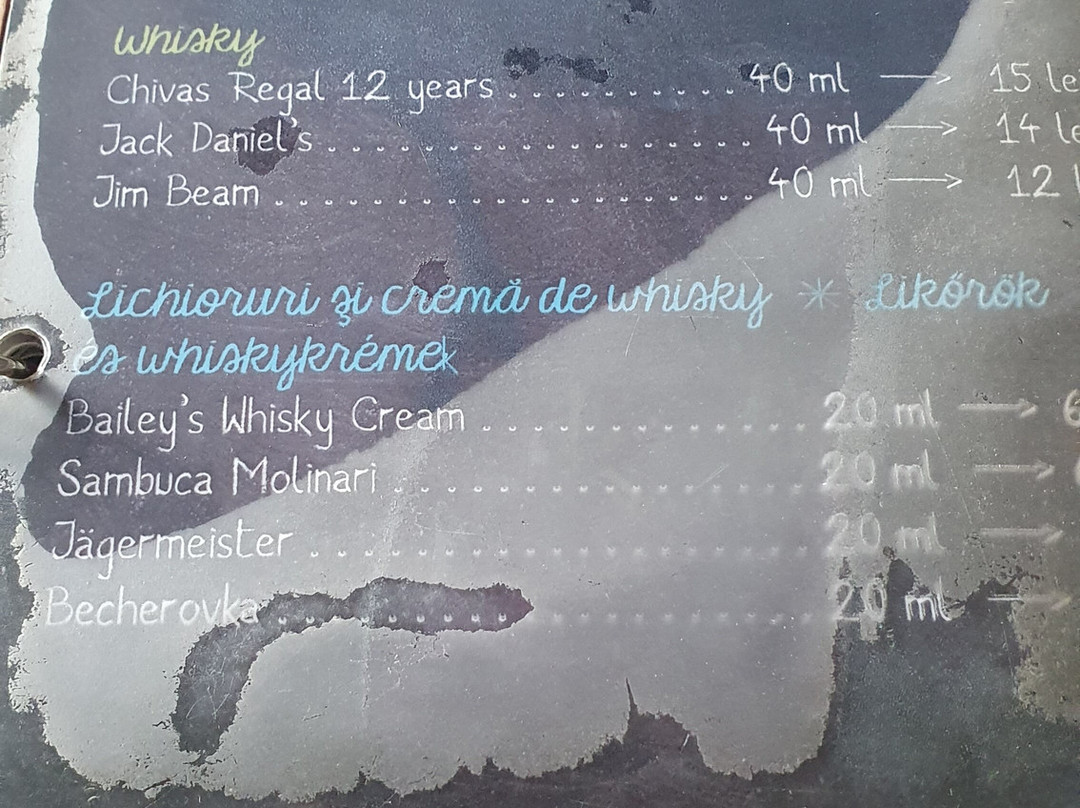 Whisky
Chivas Regal 12 years . . . . . . . . . . 40 ml → 15 le
Jack Daniel's . . . . . . . . . . . . . . . . . . 40 ml → 14 le
Jim Beam . . . . . . . . . . . . . . . . . . . . 40 ml → 12 l
Lichioruri și cremă de whisky * Likőrök
és whiskykrémek
Bailey's Whisky Cream . . . . . . . . . . . . . . 20 ml → 6
Sambuca Molinari . . . . . . . . . . . . . . . . . 20 ml →
Jägermeister . . . . . . . . . . . . . . . . . . . . 20 ml →
Becherovka . . . . . . . . . . . . . . . . . . . . . 20 ml →